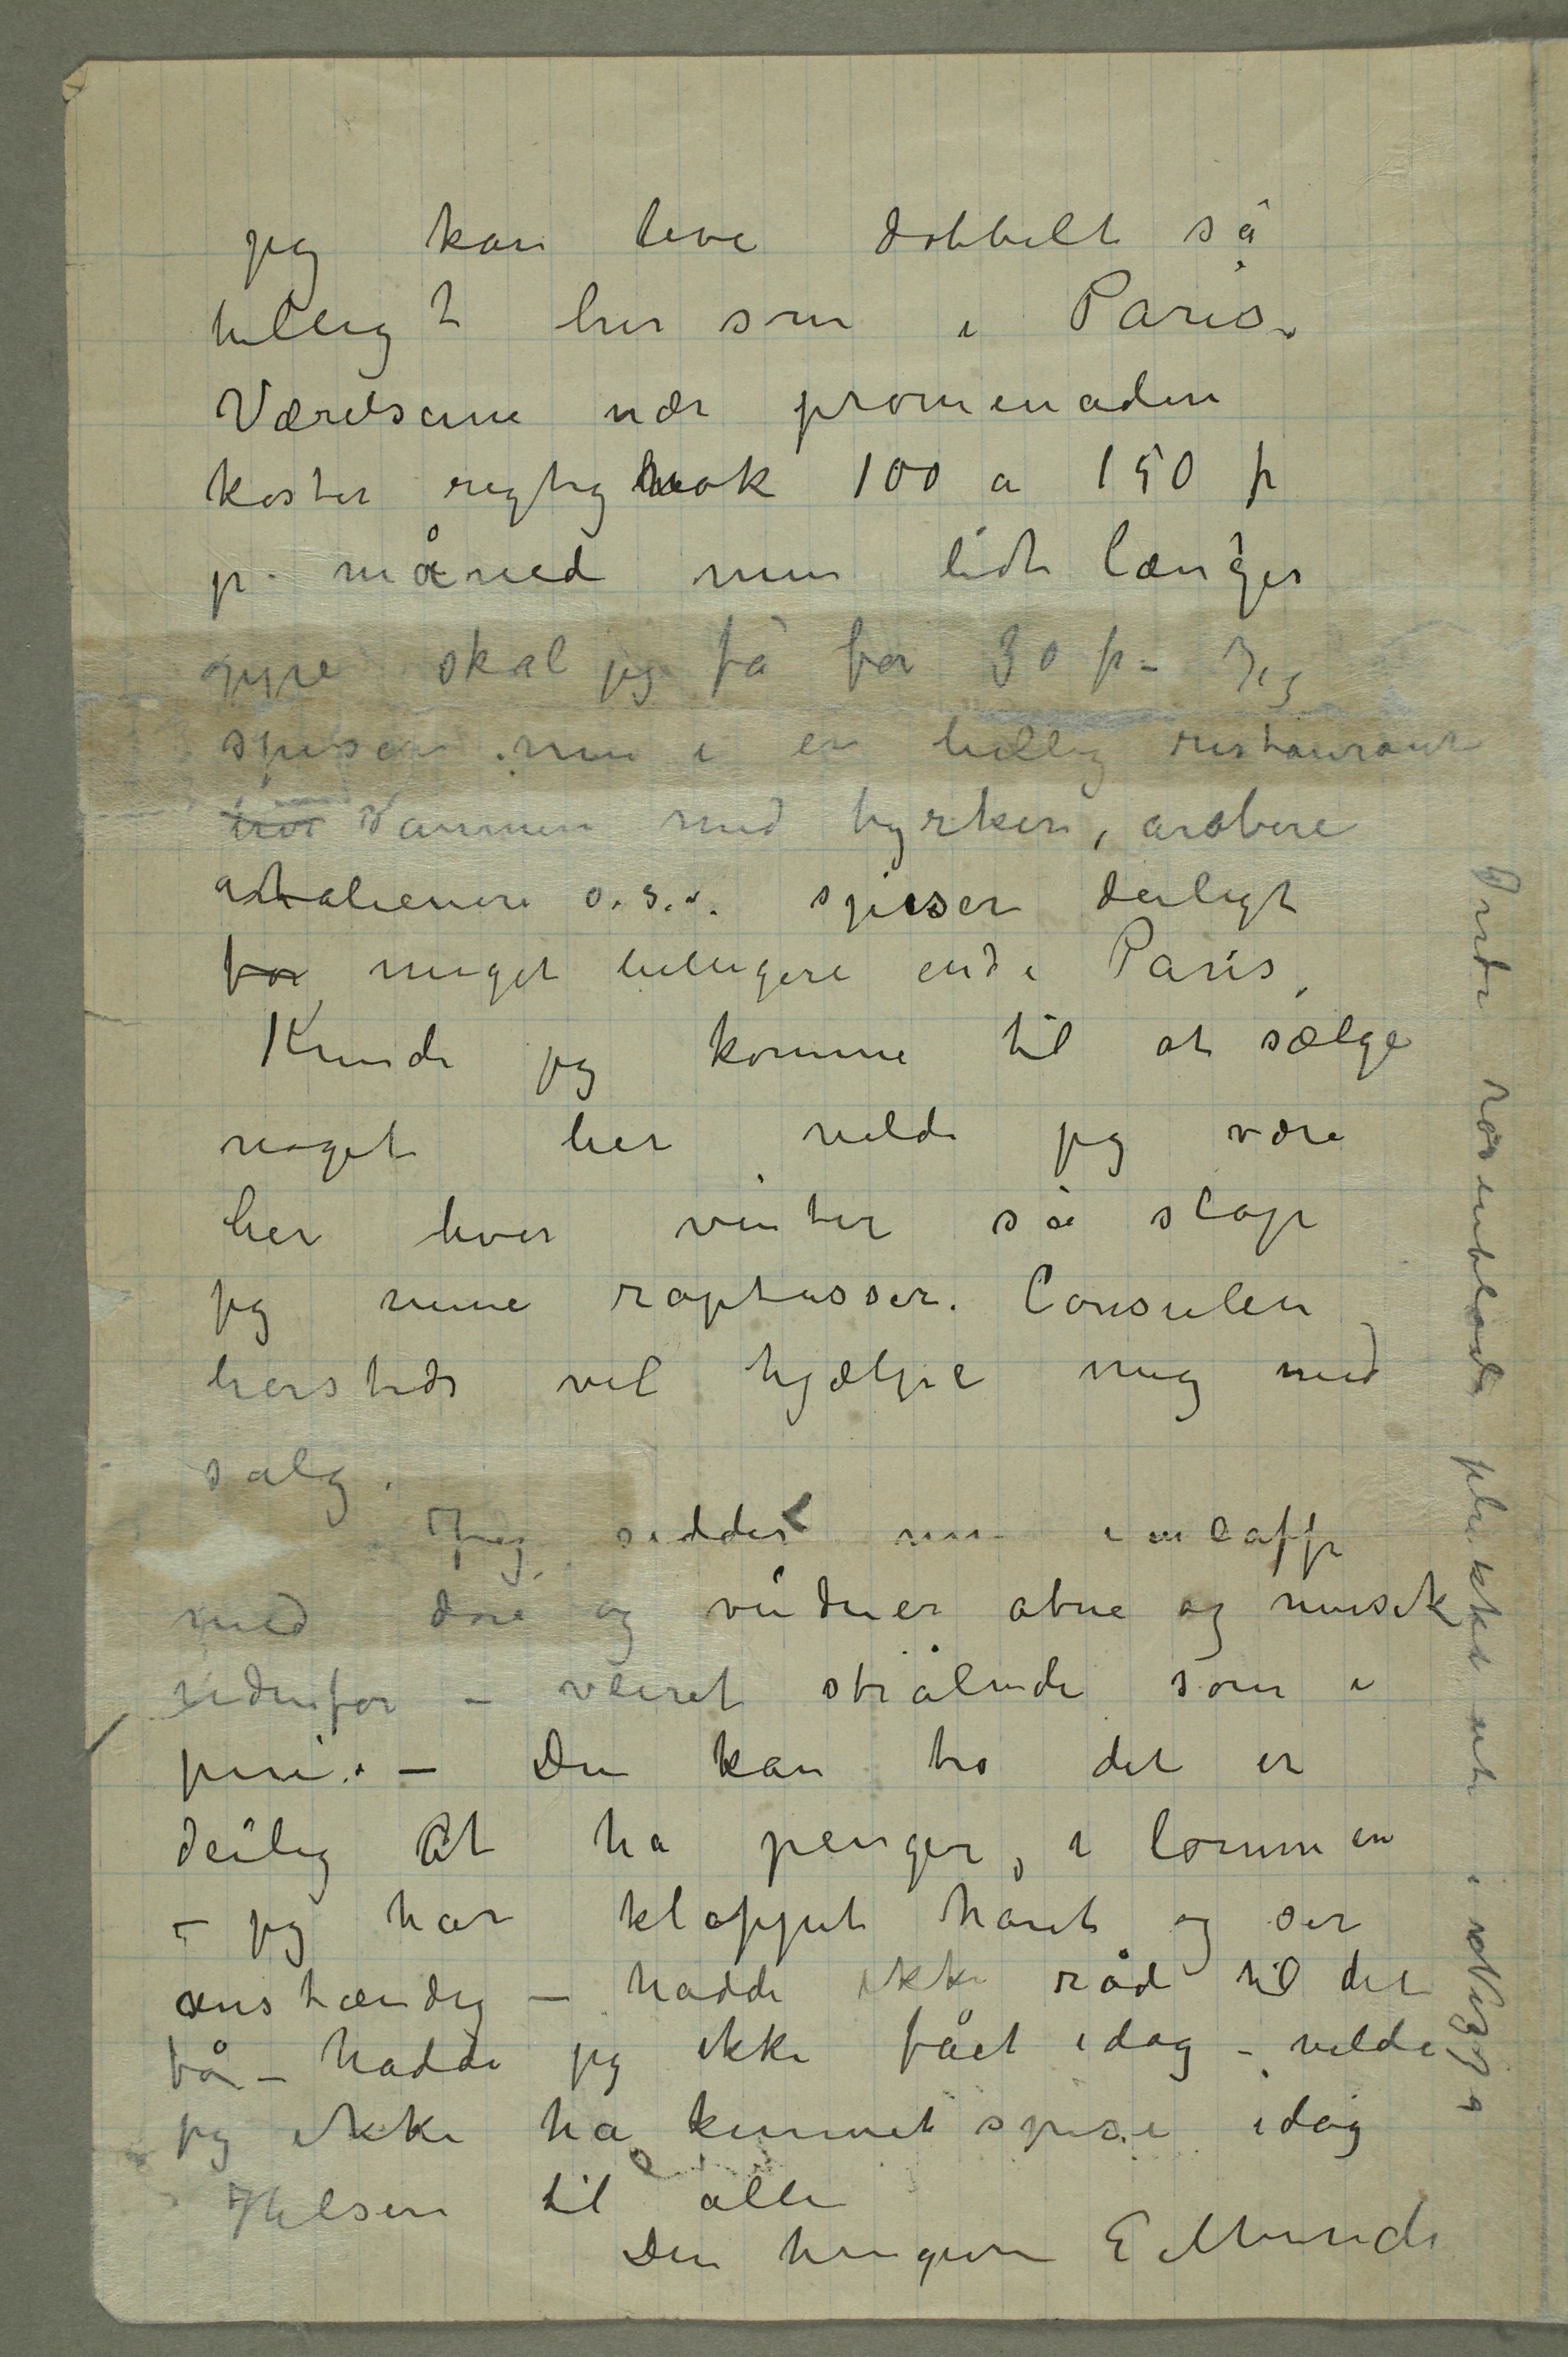 jeg kan leve dobbelt så
billigt her som i Paris.
Værelserne nær promenaden
koster rigtig nok 100 a 150 fr
pr. måned men lidt længer
oppe skal jeg få for 30 fr – Jeg
spiser nu i en billig restaurant
sammen med tyrkere, arabere
italienere o.s.v. spiser deiligt
for meget billigere end i Paris,
Kunde jeg komme til at sælge
noget her vilde jeg være
her hver vinter så slap
jeg mine raptusser. Consulen
hersteds vil hjælpe mig med
salg.
Jeg sidder nu i en caffe
med døre og vinduer abne og musik
udenfor – veiret strålende som i
juni. – Du kan tro det er
deilig At ha penger, i lommen
– jeg har klappet håret og ser
anstændig – hadde ikke råd til det
før – hadde jeg ikke fået idag – vilde
jeg ikke ha kunnet spise idag
Hilsen til alle
Din hengivne E Munch
Dette rosenblad plukket ude i Nizza